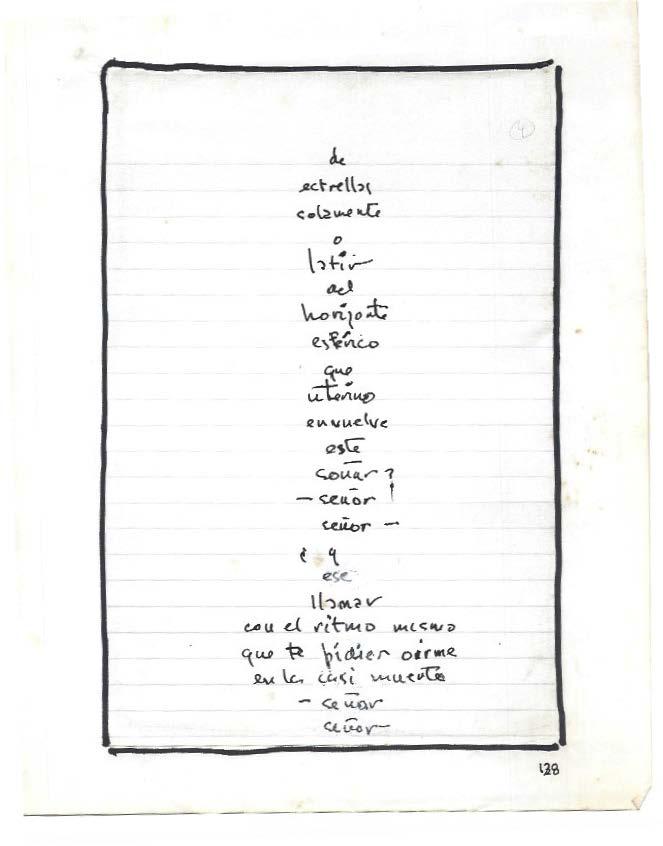 4
de
estrellas
solamente
o
latir
del
horizonte
esférico
que
uterino
envuelve
este
soñar?
- señor!
señor -
¿ y
ese
llamar
con el ritmo mismo
que te pidier oirme
en la casi muerte
- señor
señor -
128